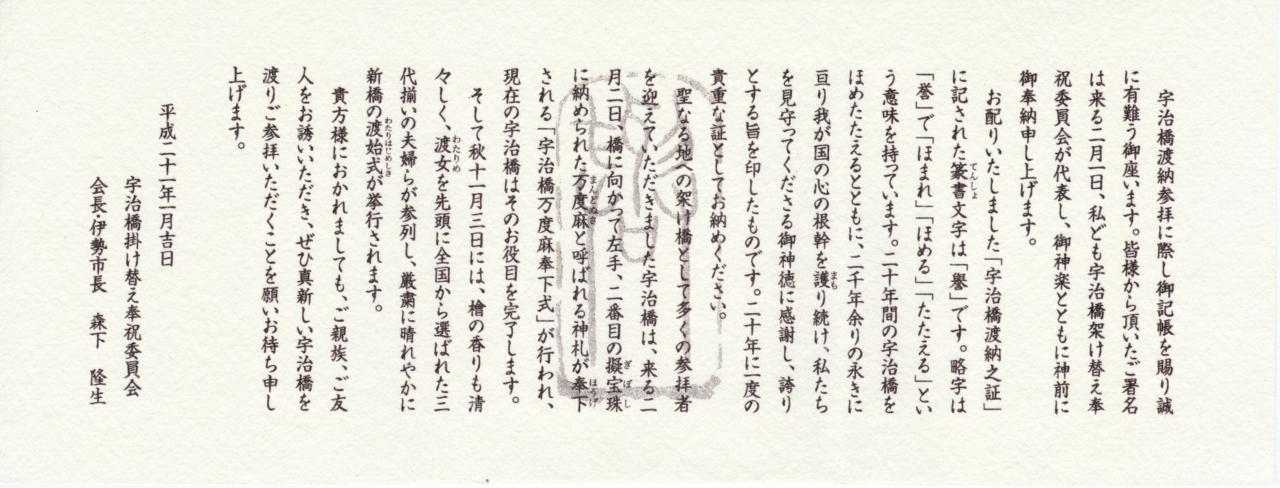 宇治橋渡納参拝に際し御記帳を賜り誠
に有難う御座います。皆様から頂いたご署名
は来る二月一日、私ども宇治橋架け替え奉
祝委員会が代表し、御神楽とともに神前に
御奉納申し上げます。
お配りいたしました「宇治橋渡納之証」
に記された篆書文字は「譽」です。略字は
「誉」で「ほまれ」「ほめる」「たたえる」とい
う意味を持っています。二十年間の宇治橋を
ほめたたえるとともに、二千年余りの永きに
亘り我が国の心の根幹を護り続け、私たち
を見守ってくださる御神徳に感謝し、誇り
とする旨を印したものです。二十年に一度の
貴重な証としてお納めください。
聖なる地への架け橋として多くの参拝者
を迎えていただきました宇治橋は、来る二
月二日、橋に向かって左手、二番目の擬宝珠
に納められた万度麻と呼ばれる神札が奉下
される「宇治橋万度麻奉下式」が行われ、
現在の宇治橋はそのお役目を完了します。
そして秋十一月三日には、檜の香りも清
々しく、渡女を先頭に全国から選ばれた三
代揃いの夫婦らが参列し、厳粛に晴れやかに
新橋の渡始式が挙行されます。
貴方様におかれましても、ご親族、ご友
人をお誘いいただき、ぜひ真新しい宇治橋を
渡りご参拝いただくことを願いお待ち申し
上げます。
平成二十一年一月吉日
宇治橋掛け替え奉祝委員会
会長・伊勢市長 森下 隆生